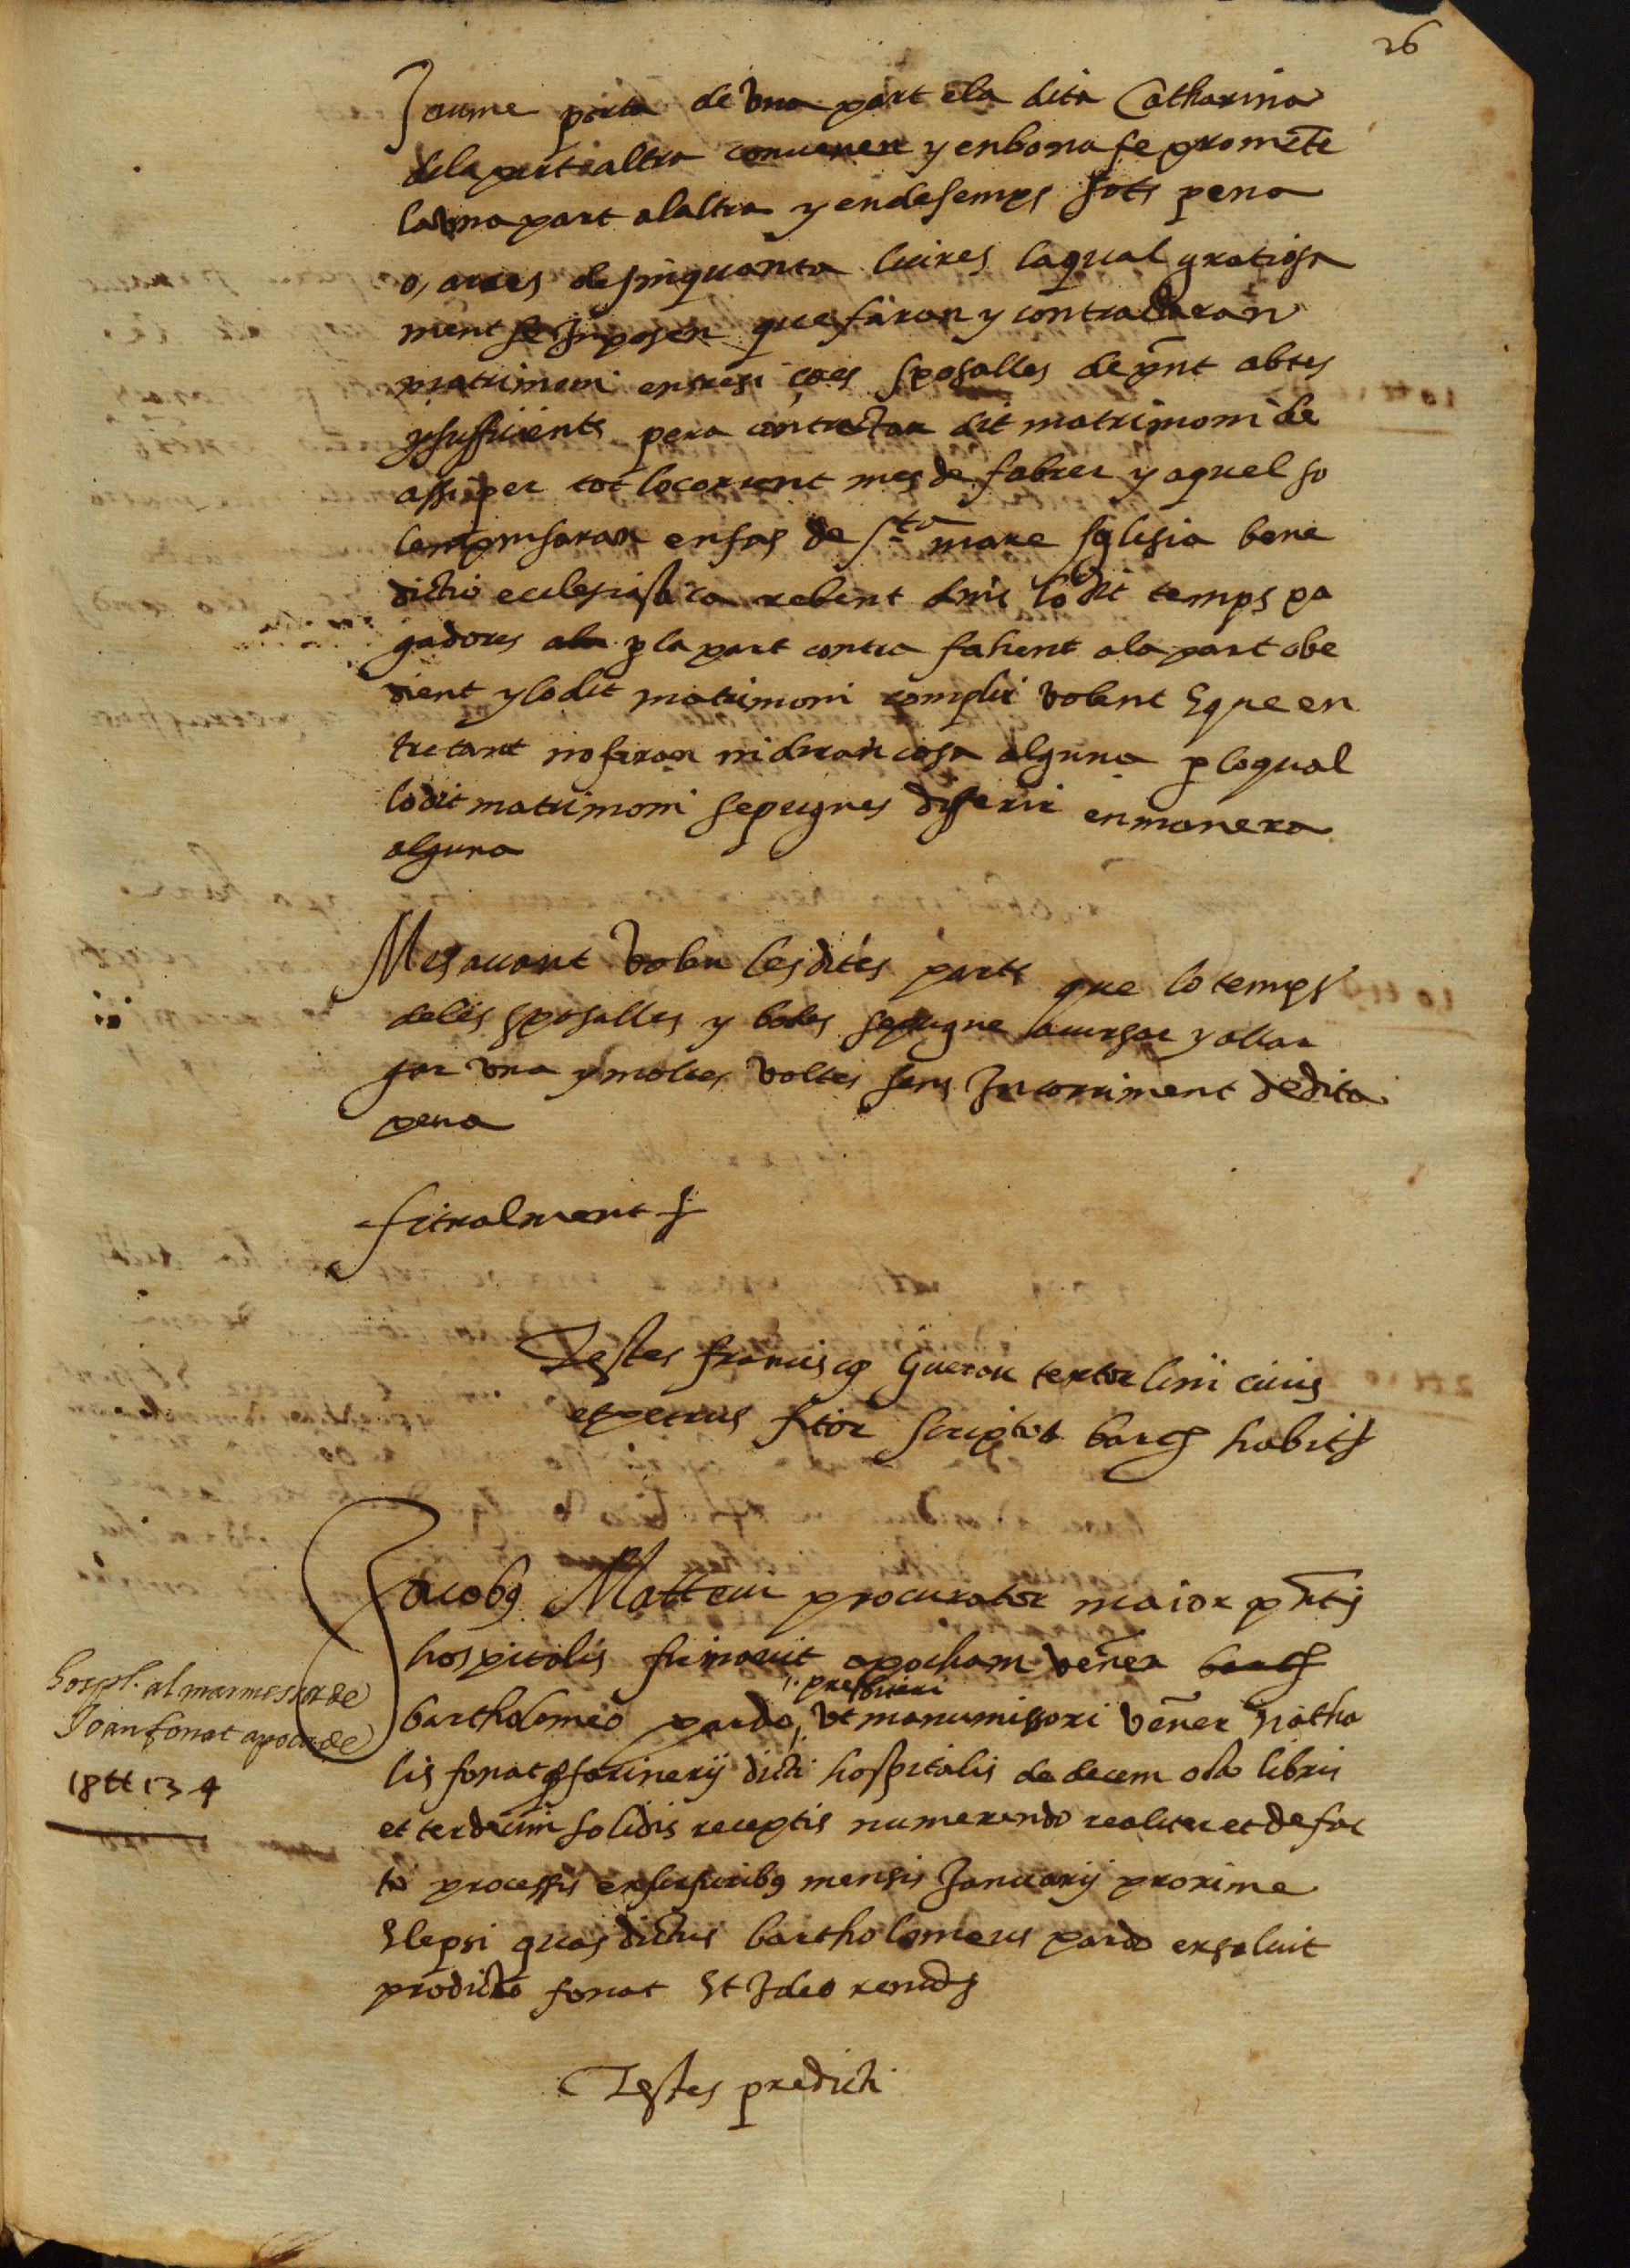 26
Jaume porta de vna part e la dita Catharina
dela part altra conuenen y enbona fe promete
la vna part alaltra y endesemps sots pena
o, arres de sinquanta liures laqual gratiosa
ment se Imposen que faran y contractaran
matrimoni entresi ço es sposalles de pñt abtes
y sufficients pera contractar dit matrimoni de
assi per tot lo corrent mes de fabrer y aquel so
lempnisaran enfas de S.ta mare sglesia bene
dictio eclesiastica rebent dins lo dit temps pa
gadores p la part contra fahent ala part obe
dient y lo dit matrimoni complir volent E que en
tretant no faran ni diran cosa alguna p loqual
lo dit matrimoni se pugues differir en manera
alguna
Mes auant volen les dites parts que lo temps
deles sposalles y bodes se pugne auersar y allar
gar vna y moltes voltes sens Incorriment de dita
pena
fitralment
Testes franciscq Guerau textor lini ciuis
et petrus fitor scriptor barcħ habit
Jacobq Matteu procurator maior pñtis
hospitalis firmauit apocham veñer barcħ
presbiteri
bartholomeo pardo, vt manumissori veñer Natha
lis fonat farinerij dicti hospitalis de decem octo libris
et terdecim solidis receptis numerando realiter et de fac
to processis ex furfuribq mensis Januarij proxime
Elepsi quas dictus bartholomeus pardo exsoluit
pro dicto fonat Et Ideo renuds
Hospl. al marmessor de
Joan fonat apoca de
18 tt 13 9
Testes predicti